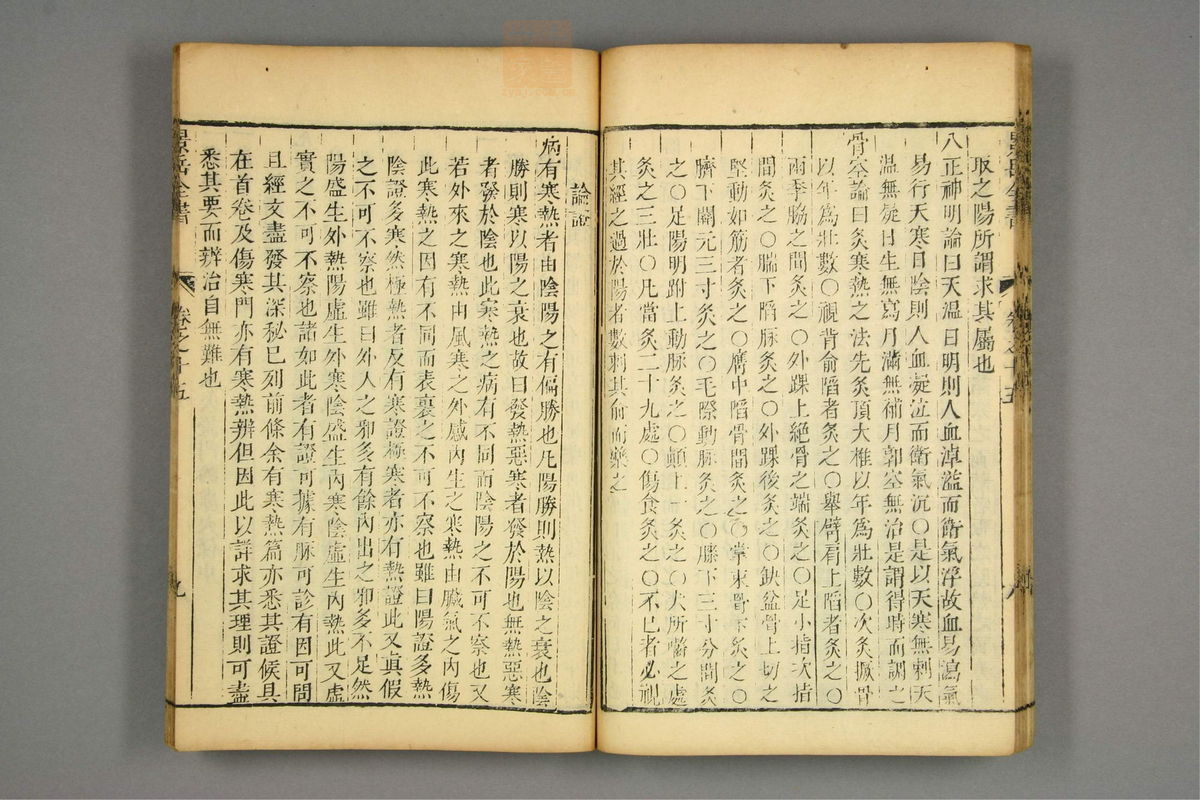 取之陽所謂求其屬也
八正神明論曰天溫日明則人血淖溢而衛氣浮故血易瀉氣
易行天寒日陰則人血凝泣而衛氣沉○是以天寒無刺天
溫無疑日生無瀉月滿無補月郭空無治是謂得時而調之
骨空論曰灸寒熱之法先灸項大椎以年爲壯數○次灸撅骨
以年爲壯數○視背俞陷者灸之○舉臂肩上陷者灸之○
兩季脇之間灸之○外踝上絕骨之端灸之○足小指次指
間灸之○腨下陷脉灸之○外踝後灸之○缺盆骨上切之
堅動如筋者灸之○膺中陷骨間灸之○掌束骨下灸之○
臍下關元三寸灸之○毛際動脉灸之○膝下三寸分間灸
之○足陽明跗上動脉灸之○巔上一灸之○犬所嚙之處
灸之三壯○凡當灸二十九處○傷食灸之○不已者必視
其經之過於陽者數刺其俞而藥之
景岳全書
卷之十五
八
論證
病有寒熱者由陰陽之有偏勝也凡陽勝則熱以陰之衰也陰
勝則寒以陽之衰也故曰發熱惡寒者發於陽也無熱惡寒
者發於陰也此寒熱之病有不同而陰陽之不可不察也又
若外來之寒熱由風寒之外感內生之寒熱由臟氣之內傷
此寒熱之因有不同而表裏之不可不察也雖曰陽證多熱
陰證多寒然極熱者反有寒證極寒者亦有熱證此又眞假
之不可不察也雖曰外入之邪多有餘內出之邪多不足然
陽盛生外熱陽虛生外寒陰盛生內寒陰虛生內熱此又虛
實之不可不察也諸如此者有證可據有脉可診有因可問
且經文盡發其深秘已列前條余有寒熱篇亦悉其證候具
在首卷及傷寒門亦有寒熱辨但因此以詳求其理則可盡
悉其要而辨治自無難也
景岳全書
卷之十五
九